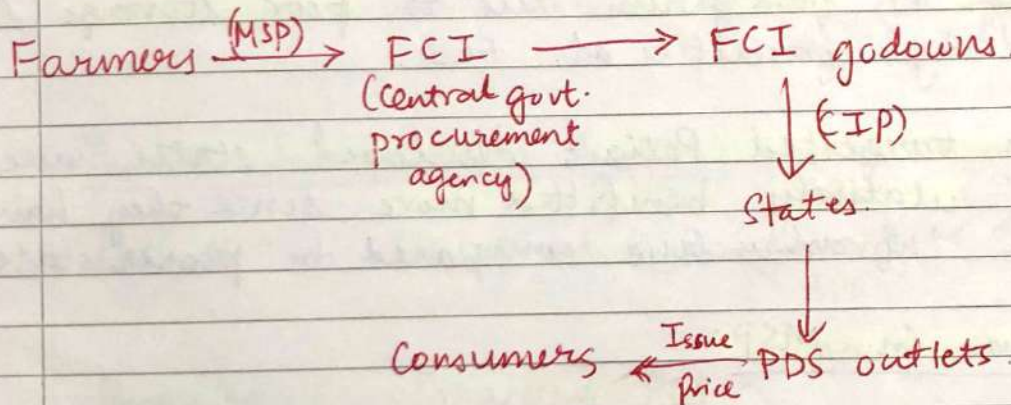 Farmers (MSP) → FCI → FCI godowns.
(Central govt.
procurement
agency)
(CIP)
States.
Consumers ← Issue Price PDS outlets.